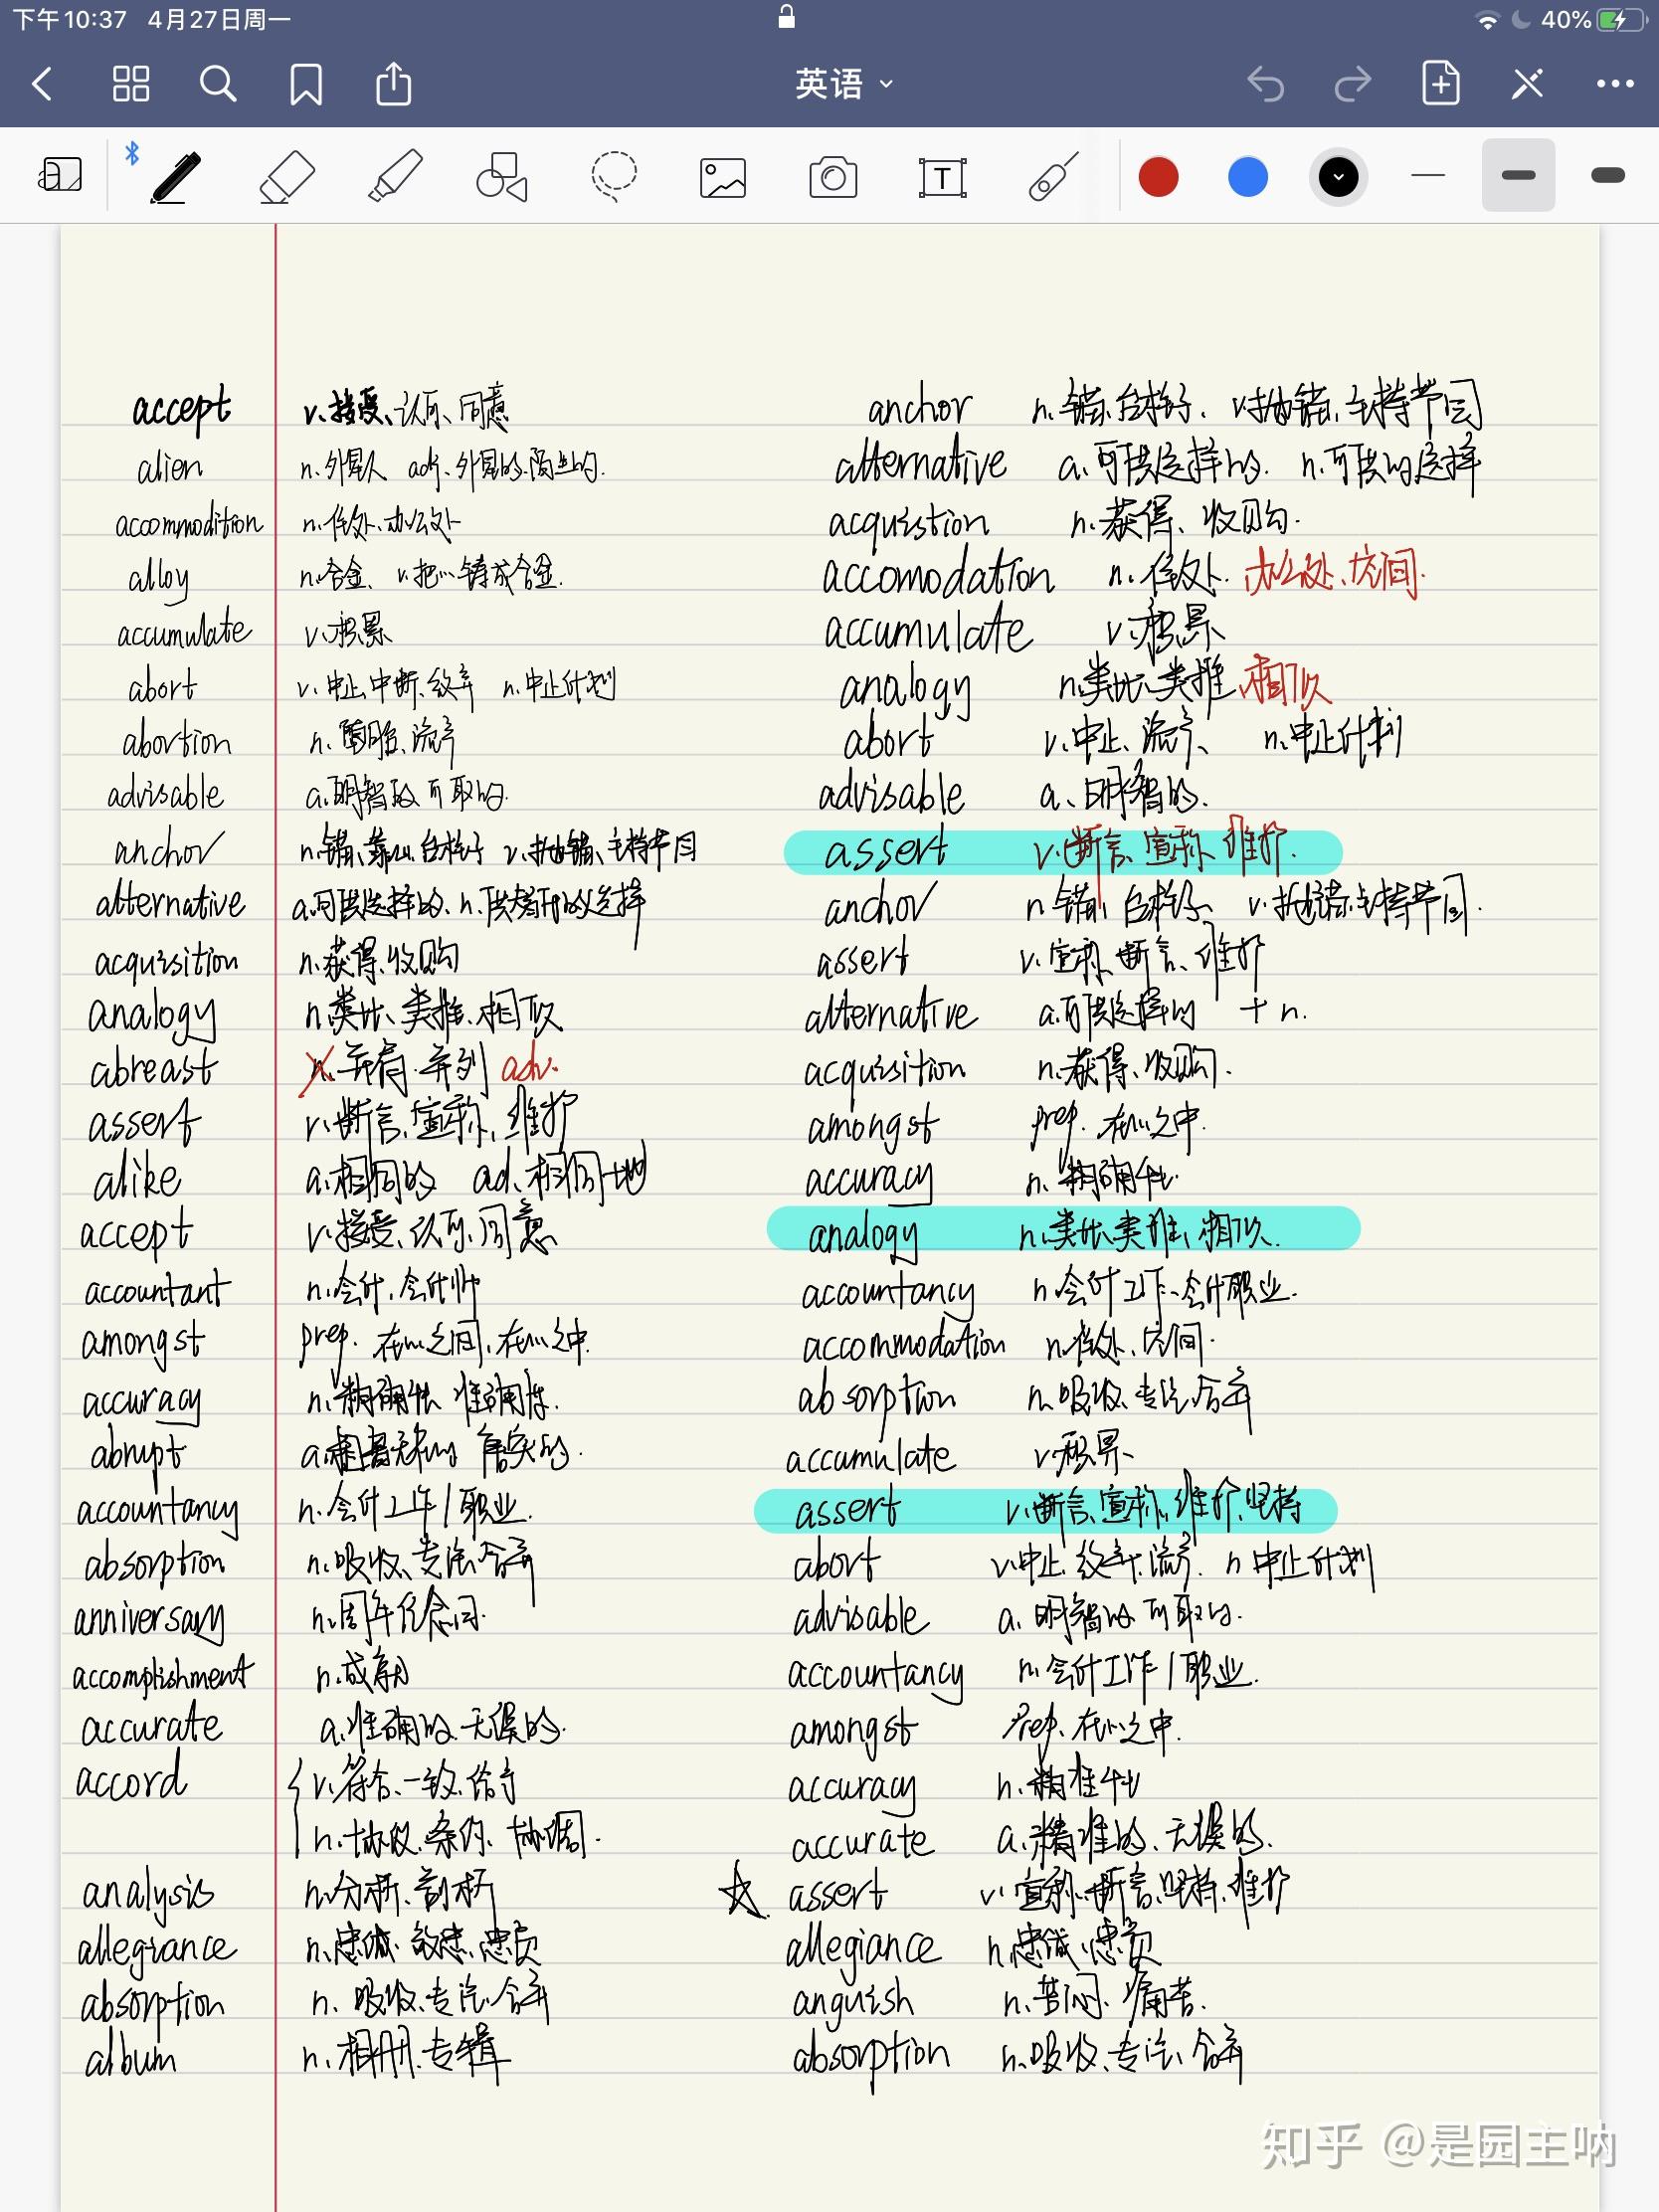 下午10:37 4月27日周一
40%
英语
accept v.接受、认可、同意
alien n.外星人 adj.外星的.陌生的.
accommodition n.住处、办公处
alloy n.合金、v.把…铸成合金.
accumulate v.积累
abort v.中止中断、放弃 n.中止计划
abortion n.堕胎、流产
advisable a.明智的可取的.
anchor n.锚、靠山、台柱子 v.抛锚、主持节目
alternative a.可供选择的、n.供替用的选择
acquisition n.获得、收购
analogy n.类比、类推、相似
abreast n.并肩.并列 adv.
assert v.断言、宣称、维护
alike a.相同的 ad.相同地
accept v.接受、认可、同意
accountant n.会计,会计师
amongst prep. 在…之间,在…之中.
accuracy n.精确性 准确性.
abrupt a. 唐突的.
accountancy n.会计工作/职业.
absorption n.吸收、专注、合并
anniversary n.周年纪念日.
accomplishment n.成就
accurate a.准确的.无误的.
accord v.符合、一致、给予
n.协议.条约、协调.
analysis n.分析、剖析
allegiance n.忠诚、效忠、忠贞
absorption n.吸收、专注、合并
album n.相册.专辑
anchor n.锚、台柱子. v.抛锚、主持节目
alternative a.可供选择的. n.可供的选择
acquistion n.获得、收购.
accomodation n.住处.办公处、房间.
accumulate v.积累
analogy n.类比、类推、相似
abort v.中止、流产、 n.中止计划
advisable a、明智的.
assert v.断言、宣称、维护.
anchor n.锚、台柱子 v.抛锚、主持节目.
assert v.宣称、断言、维护
alternative a.可供选择的 + n.
acquisition n.获得、收购.
amongst prep. 在…之中.
accuracy n.精确性.
analogy n.类比、类推、相似.
accountancy n.会计工作、会计职业.
accommodation n.住处、房间.
absorption n.吸收、专注、合并
accumulate v.积累、
assert v.断言、宣称、维护、坚持
abort v.中止.放弃.流产. n中止计划
advisable a.明智的可取的.
accountancy n.会计工作/职业.
amongst Prep.在…之中.
accuracy n.精准性
accurate a.精准的、无误的.
☆ assert v.宣称、断言、坚持、维护
allegiance n.忠诚、忠贞
anguish n.苦闷、痛苦.
absorption n.吸收、专注、合并
知乎 @是园主呐